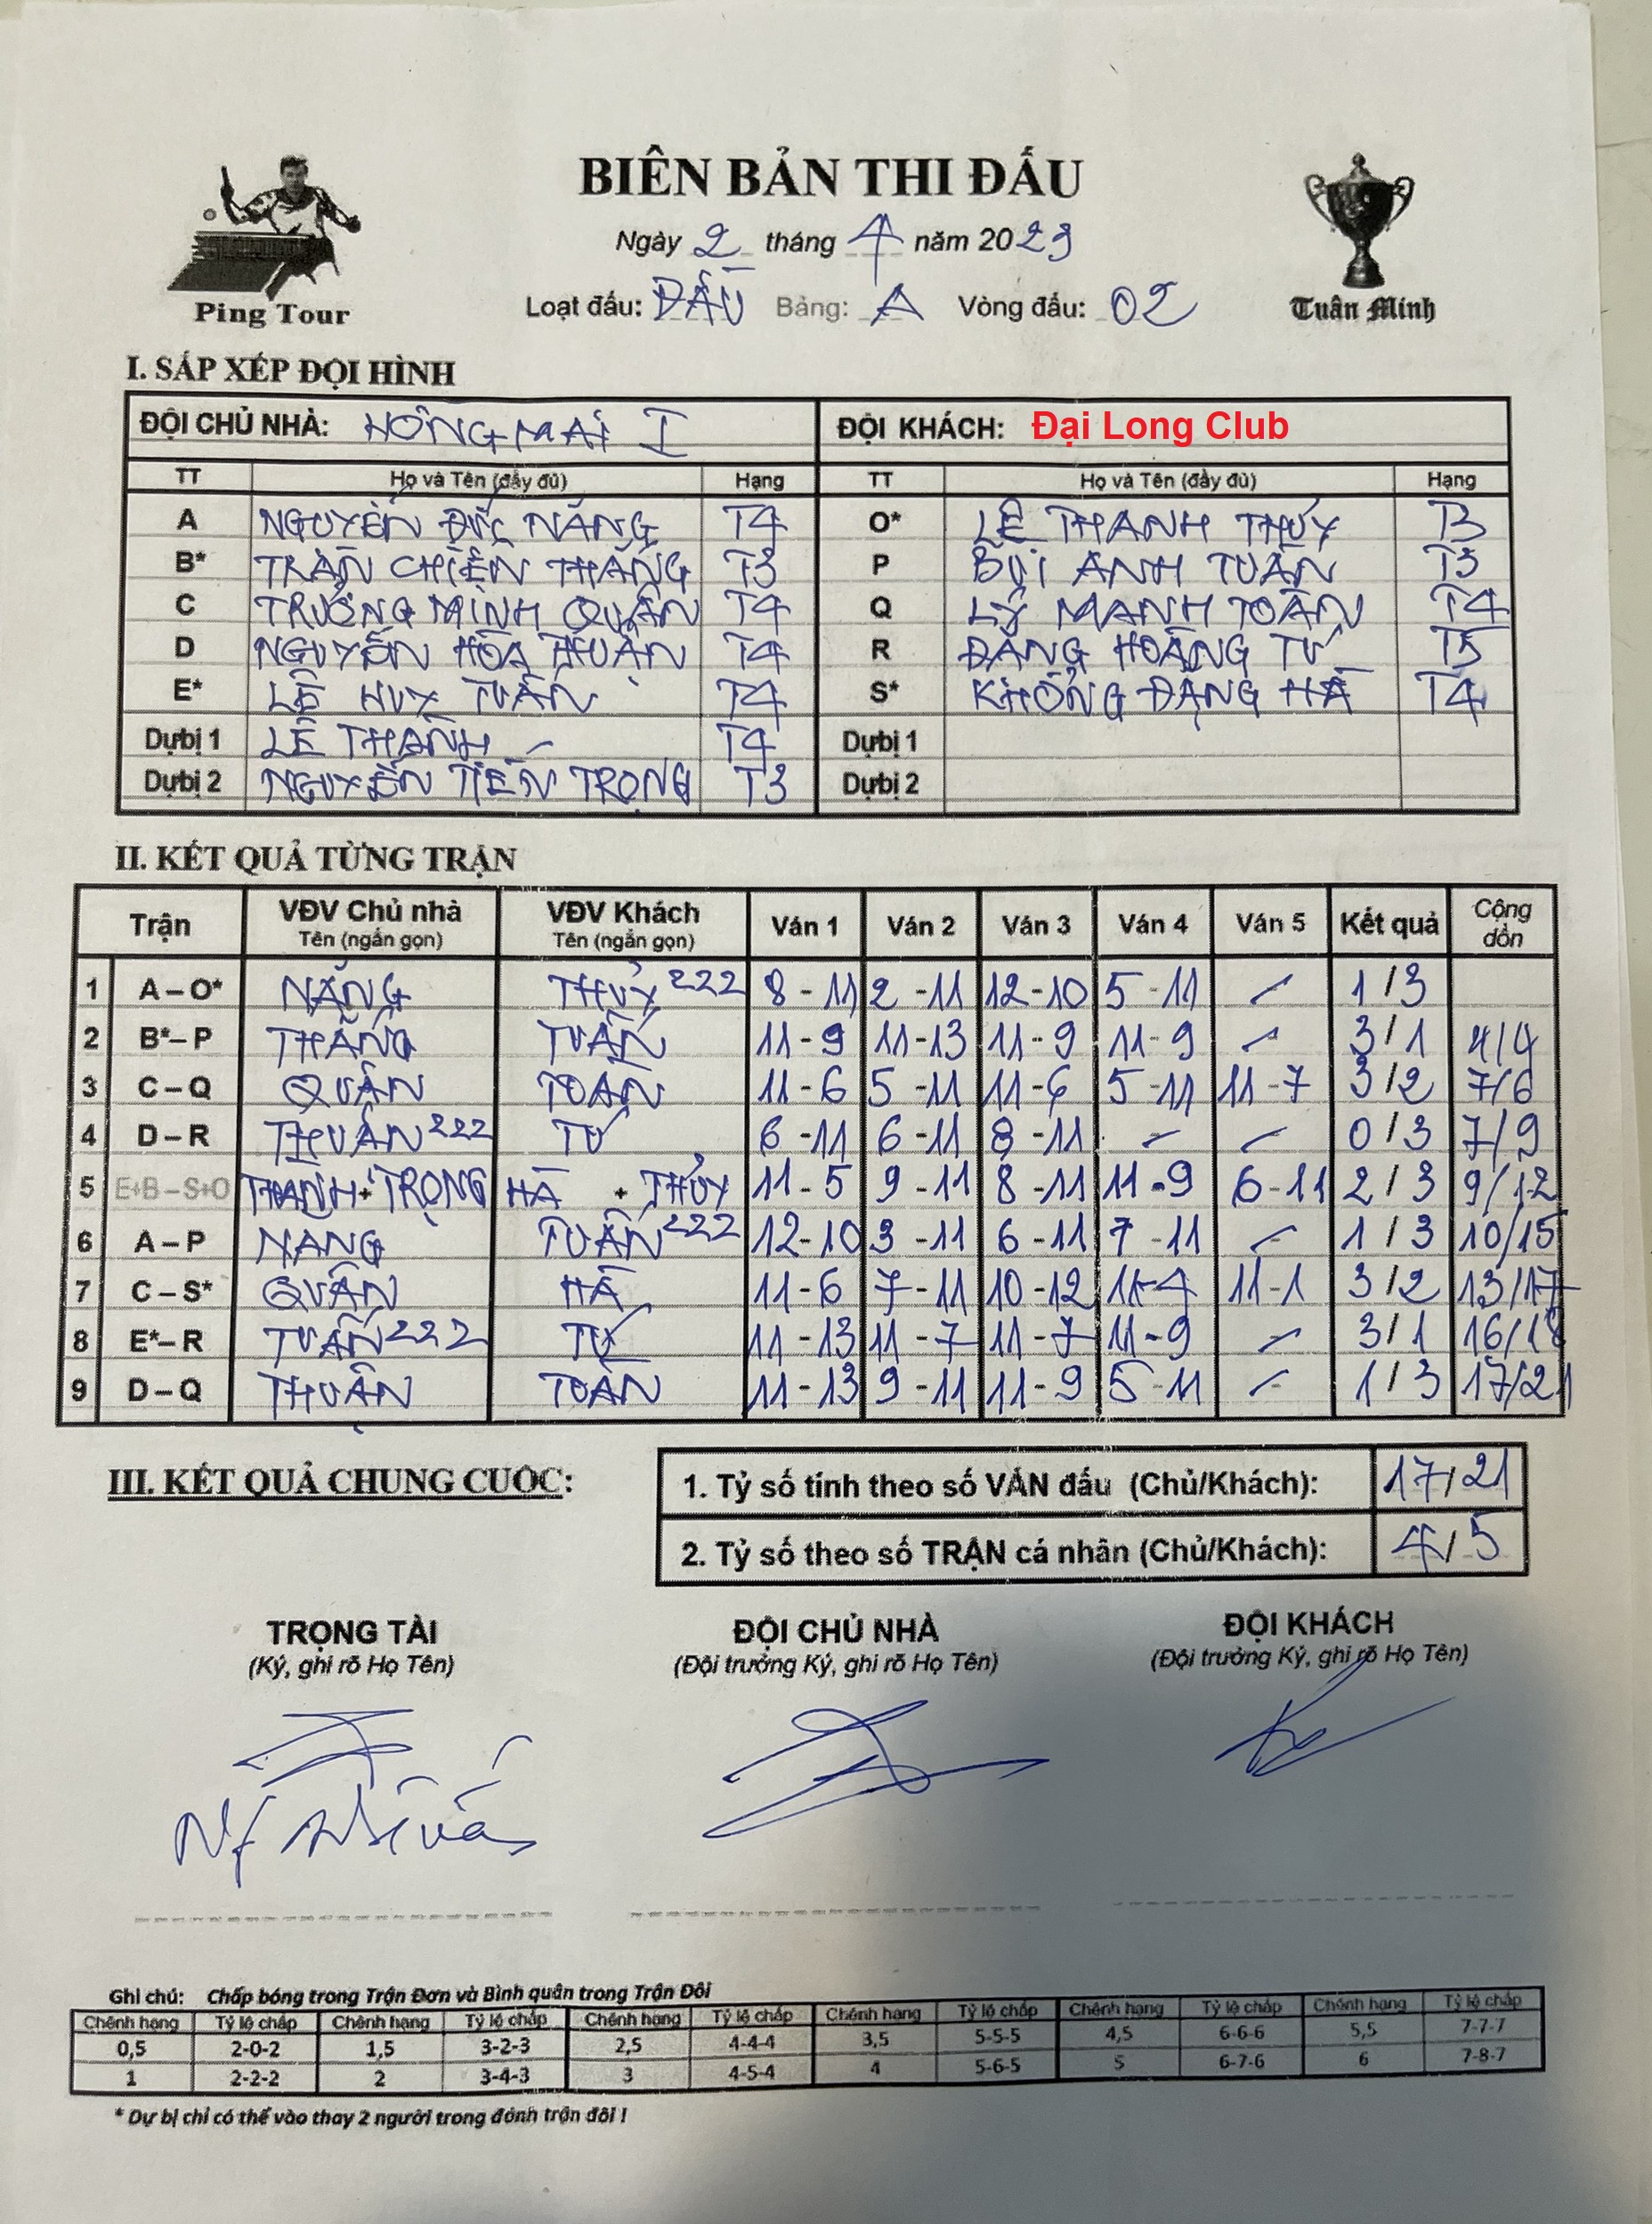 BIÊN BẢN THI ĐẤU
Ngày 2 tháng 4 năm 2023
Loạt đấu: ĐẦU Bảng: A Vòng đấu: 02
Ping Tour
Tuân Minh
I. SẮP XẾP ĐỘI HÌNH
ĐỘI CHỦ NHÀ: HỒNG MAI I ĐỘI KHÁCH: Đại Long Club
TT Họ và Tên (đầy đủ) Hạng TT Họ và Tên (đầy đủ) Hạng
A NGUYỄN ĐỨC NĂNG T4 O* LÊ THANH THỦY T3
B* TRẦN CHIẾN THẮNG T3 P BÙI ANH TUẤN T3
C TRƯƠNG MINH QUÂN T4 Q LÝ MẠNH TOÀN T4
D NGUYỄN HÒA THUẬN T4 R ĐẶNG HOÀNG TÚ T5
E* LÊ HUY TUẤN T4 S* KHỔNG ĐẶNG HÀ T4
Dự bị 1 LÊ THANH T4 Dự bị 1
Dự bị 2 NGUYỄN TIẾN TRỌNG T3 Dự bị 2
II. KẾT QUẢ TỪNG TRẬN
Trận VĐV Chủ nhà Tên (ngắn gọn) VĐV Khách Tên (ngắn gọn) Ván 1 Ván 2 Ván 3 Ván 4 Ván 5 Kết quả Cộng dồn
1 A – O* NĂNG THỦY 222 8 - 11 2 - 11 12 - 10 5 - 11 - 1 / 3
2 B* – P THẮNG TUẤN 11 - 9 11 - 13 11 - 9 11 - 9 - 3 / 1 4/4
3 C – Q QUÂN TOÀN 11 - 6 5 - 11 11 - 6 5 - 11 11 - 7 3 / 2 7/6
4 D – R THUẬN 222 TÚ 6 - 11 6 - 11 8 - 11 - - 0 / 3 7/9
5 E+B – S+O THANH + TRỌNG HÀ + THỦY 11 - 5 9 - 11 8 - 11 11 - 9 6 - 11 2 / 3 9/12
6 A – P NĂNG TUẤN 222 12 - 10 3 - 11 6 - 11 7 - 11 - 1 / 3 10/15
7 C – S* QUÂN HÀ 11 - 6 7 - 11 10 - 12 11 - 4 11 - 1 3 / 2 13/17
8 E* – R TUẤN 222 TÚ 11 - 13 11 - 7 11 - 7 11 - 9 - 3 / 1 16/18
9 D – Q THUẬN TOÀN 11 - 13 9 - 11 11 - 9 5 - 11 - 1 / 3 17/21
III. KẾT QUẢ CHUNG CUỘC:
1. Tỷ số tính theo số VÁN đấu (Chủ/Khách): 17/21
2. Tỷ số theo số TRẬN cá nhân (Chủ/Khách): 4/5
TRỌNG TÀI ĐỘI CHỦ NHÀ ĐỘI KHÁCH
(Ký, ghi rõ Họ Tên) (Đội trưởng Ký, ghi rõ Họ Tên) (Đội trưởng Ký, ghi rõ Họ Tên)
Ghi chú: Chấp bóng trong Trận Đơn và Bình quân trong Trận Đôi
Chênh hạng Tỷ lệ chấp Chênh hạng Tỷ lệ chấp Chênh hạng Tỷ lệ chấp Chênh hạng Tỷ lệ chấp Chênh hạng Tỷ lệ chấp Chênh hạng Tỷ lệ chấp
0,5 2-0-2 1,5 3-2-3 2,5 4-4-4 3,5 5-5-5 4,5 6-6-6 5,5 7-7-7
1 2-2-2 2 3-4-3 3 4-5-4 4 5-6-5 5 6-7-6 6 7-8-7
* Dự bị chỉ có thể vào thay 2 người trong đánh trận đôi !